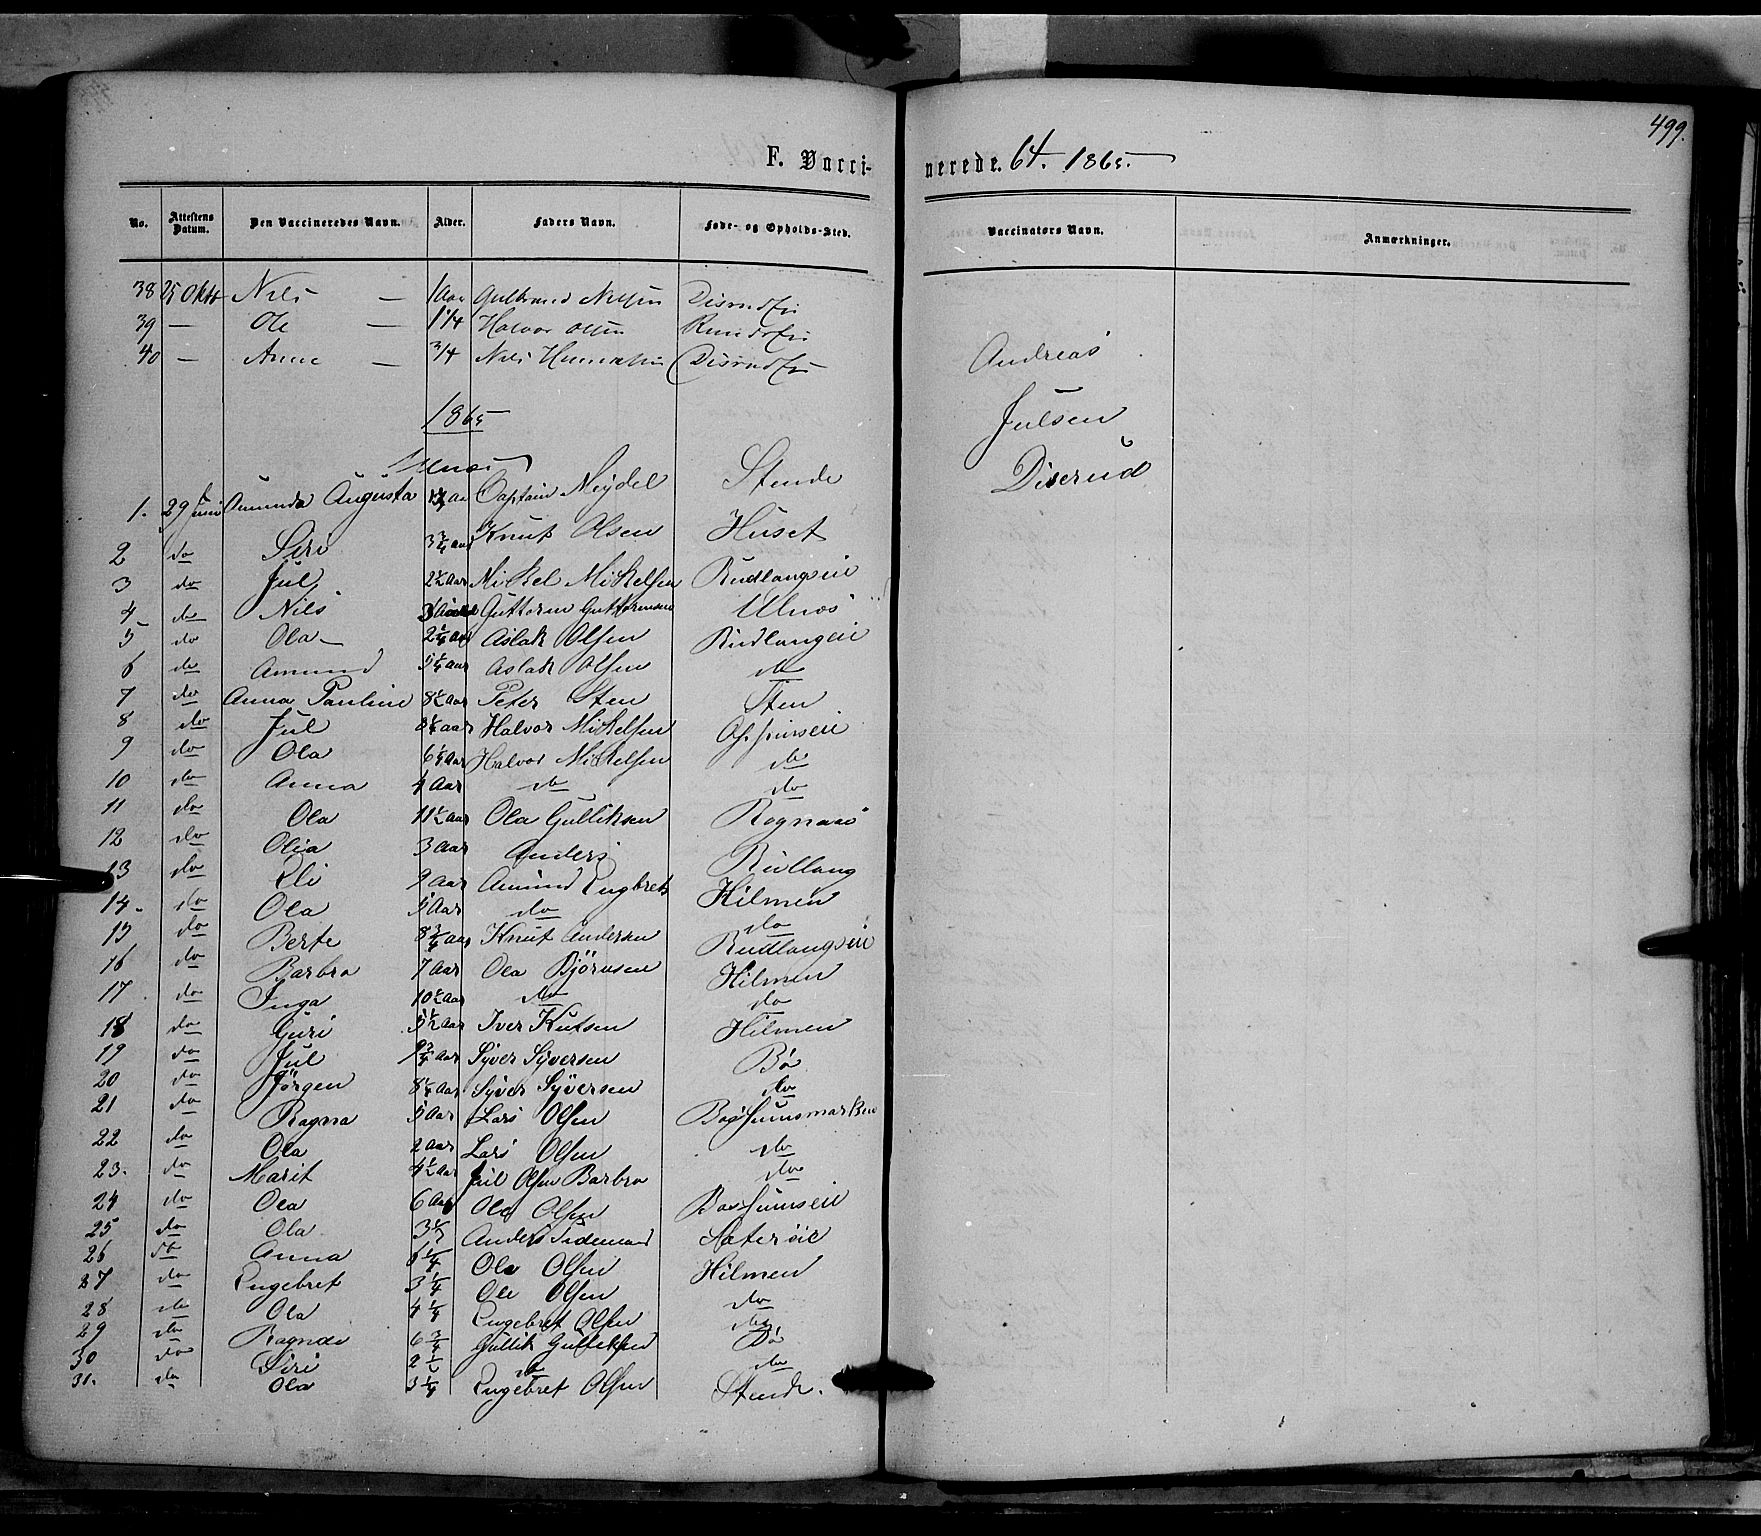 499.
F. Vacci-
nerede. 64. 1865.
No. Attestens Datum. Den Vaccineredes Navn. Alder. Faders Navn. Føde- og Opholds-Sted. Vaccinators Navn. Anmærkninger.
38 25 Oktb Nils — 1 Aar Gulbrand Nilsen
39 — Ole — 1 1/4 Halvor Olsen
40 — Anne — 3/4 Nils
Andreas
Julsen
Diserud
1865
Ulnæs
1. 29 Juni Amunda Augusta Captain Meydel Stende
2 do Siri 3 3/4 Aar Knut Olsen Huset
3 do Jul 2 1/2 Aar Mikel Mikelsen Rudlangseie
4 do Nils Guttorm Guttormsen Ulnæs
5 do Ola 2 1/4 Aar Aslak Olsen Rudlangeie
6 do Amund 5 1/4 Aar Aslak Olsen do
7 do Anna Pauline 8 1/2 Aar Peter Sten Sten
8 do Jul 8 1/4 Aar Halvor Mikelsen
9 do Ola 6 1/4 Aar Halvor Mikelsen do
10 do Anna 4 Aar do do
11 do Ola 11 1/2 Aar Ola Gulliksen Rognaas
12 do Olia 3 Aar Anders Rudlang
13 do Eli 9 Aar Amund Engbrets Hilmen
14. do Ola 5 Aar do do
15 do Berte 8 3/4 Aar Knut Andersen Rudlangseie
16 do Barbro 7 Aar Ola Bjørnsen Hilmen
17 do Inga 10 1/2 Aar do do
18 do Guri 5 1/2 Aar Iver Kutsen Hilmen
19 do Jul 9 3/4 Aar Syver Syversen Bø
20 do Jørgen 8 1/4 Aar Syver Syversen do
21 do Ragna 5 Aar Lars Olsen Baghunsmarken
22 do Ola 2 Aar Lars Olsen do
23. do Marit 4 1/2 Aar Jul Olsen Barbro do
24 do Ola 6 Aar Ola Olsen Baghunseie
25 do Ola 3 1/2 Anders Tidemand Sæterøie
26 do Anna 6 1/4 Ola Olsen Hilmen
27 do Engebret 3 1/4 Ole Olsen do
28 do Ola 4 1/4 Engebret Olsen do
29 do Ragnde 6 3/4 Gullik Gulliksen Bø
30 do Siri do do
31. do Ola 3 1/4 Engebret Olsen Stende.